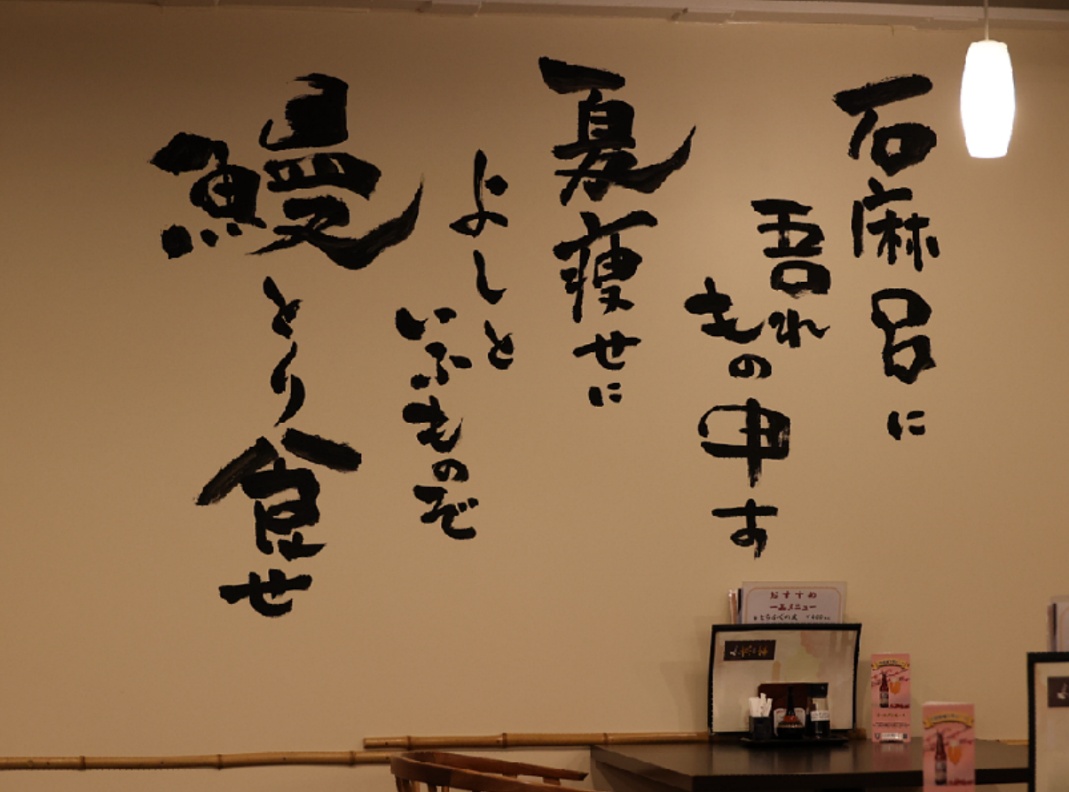 石麻呂に
吾れ
もの申す
夏痩せに
よしと
いふものぞ
鰻とり食せ
おすすめ
一品メニュー